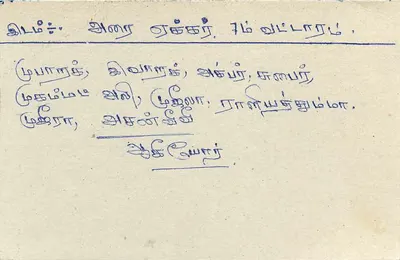 இடம்:- அரை ஏக்கர் 7ம் வட்டாரம்.
முபாறக், இவாறக், அக்பர், சுபைர்,
முகம்மட் அலி, முஜீலா, ராளியத்தும்மா.
முஜீரா, அசன்பீவீ
ஆகியோர்